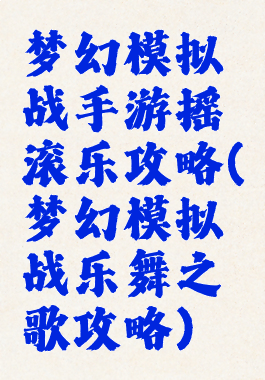 梦幻模拟
战手游摇
滚乐攻略(
梦幻模拟
战乐舞之
歌攻略)